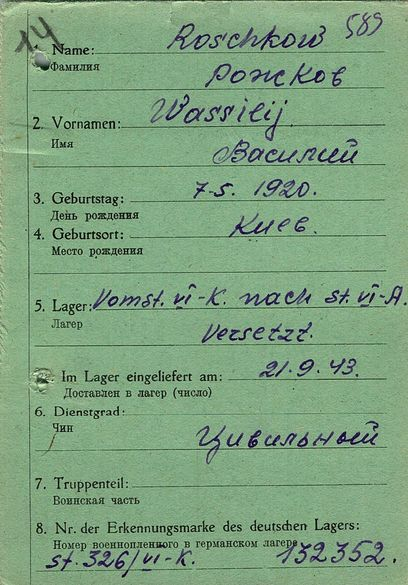 14
589
Name: Roschkow
Фамилия
Рожков
2. Vornamen: Wassilij
Имя
Василий
3. Geburtstag: 7-5. 1920.
День рождения
4. Geburtsort: Киев.
Место рождения
5. Lager: Vom st. VI-K. nach st. VI-A.
Лагер
versetzt.
Im Lager eingeliefert am: 21.9.43.
Доставлен в лагер (число)
6. Dienstgrad:
Чин
Цивильный
7. Truppenteil:
Воинская часть
8. Nr. der Erkennungsmarke des deutschen Lagers:
Номер военнопленного в германском лагере
st. 326/VI-K. 132352.